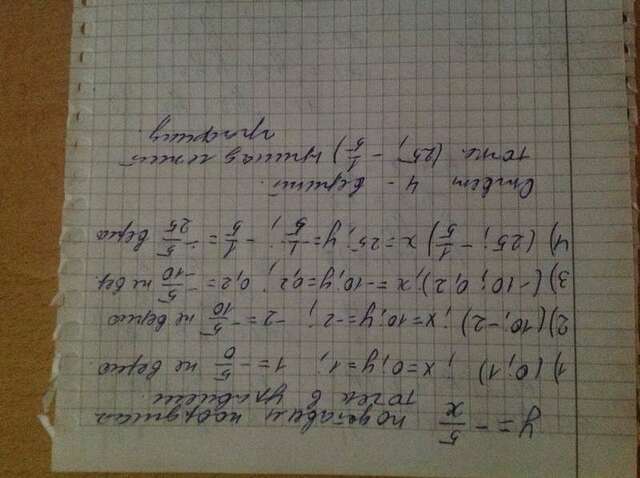 y = - 5/x подставим координат
точек в уравнен.
1) (0; 1) ; x=0; y=1; 1 = - 5/0 не верно.
2) (10; -2) ; x=10; y=-2; -2 = - 5/10 не верно
3) (-10; 0,2); x=-10, y=0,2; 0,2 = - 5/-10 не вер.
4) (25; - 1/5) x=25; y=- 1/5; - 1/5 = - 5/25 верно
Ответ 4 - вериит.
точка (25; - 1/5) принадлежит
графику.